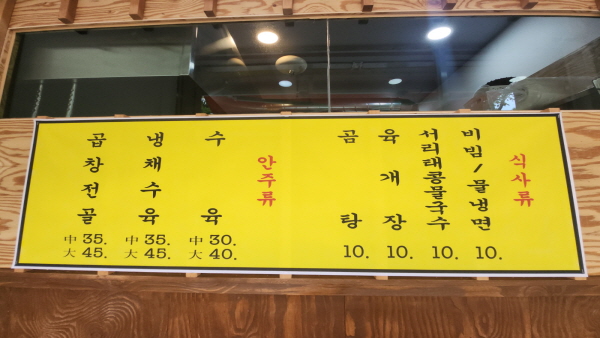 식사류
비빔/물냉면 10.
서리태콩물국수 10.
육개장 10.
곰탕 10.
안주류
수육 中 30. 大 40.
냉채수육 中 35. 大 45.
곱창전골 中 35. 大 45.